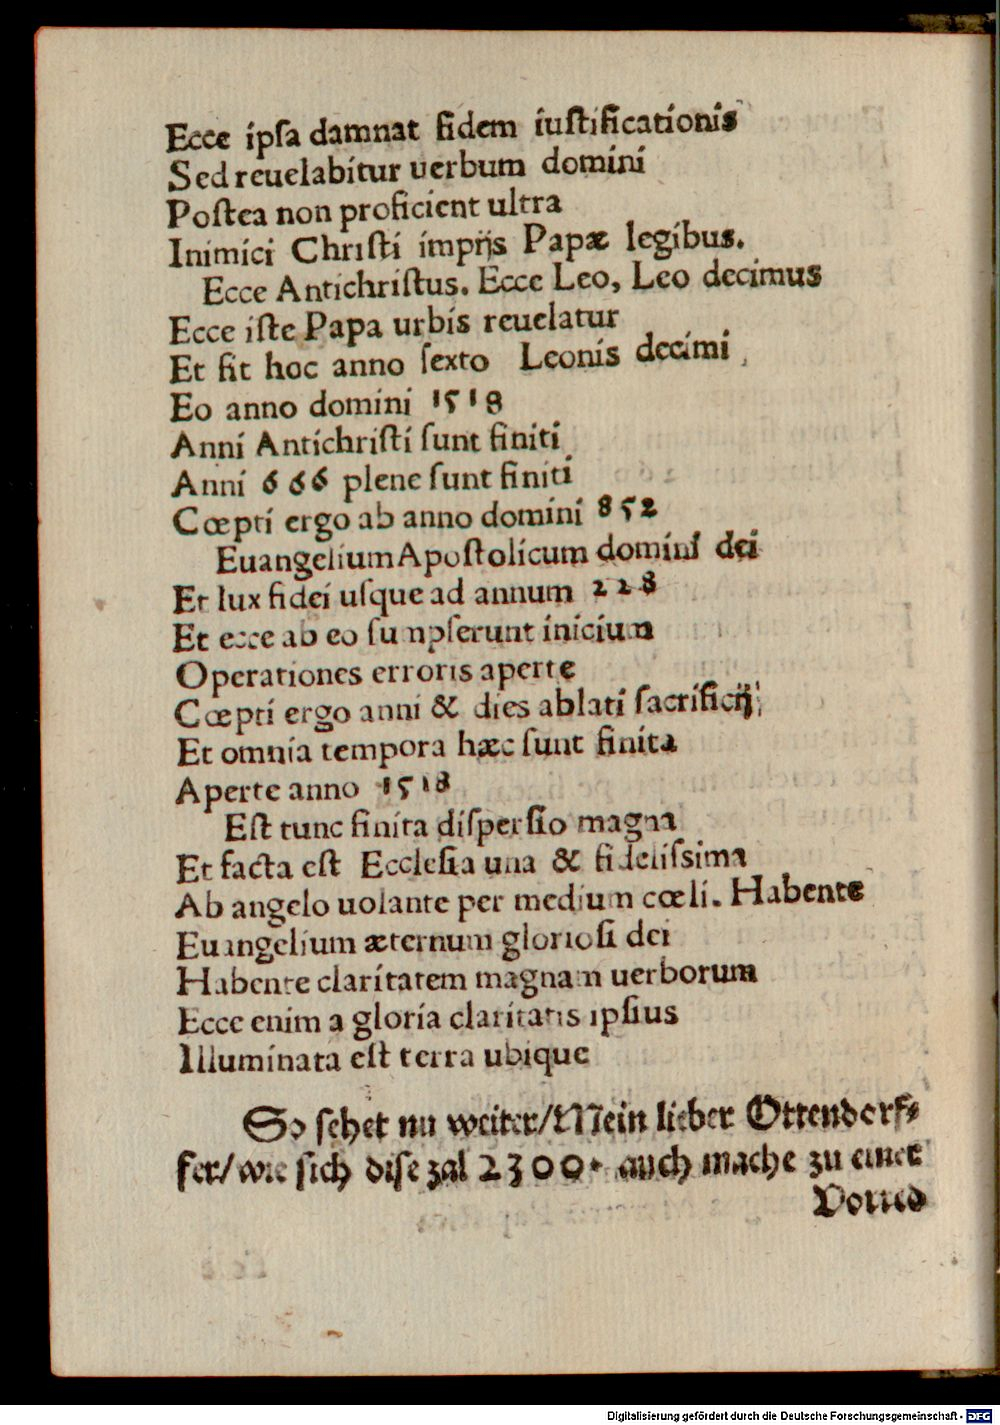 Ecce ipſa damnat fidem iuſtificationis
Sed reuelabitur uerbum domini
Poſtea non proficient ultra
Inimici Chriſti impijs Papæ legibus.
Ecce Antichriſtus. Ecce Leo, Leo decimus
Ecce iſte Papa urbis reuelatur
Et fit hoc anno ſexto Leonis decimi
Eo anno domini 1518
Anni Antichriſti ſunt finiti
Anni 666 plene ſunt finiti
Cœpti ergo ab anno domini 852
Euangelium Apoſtolicum domini dei
Et lux fidei uſque ad annum 228
Et ecce ab eo ſumpſerunt inicium
Operationes erroris aperte
Cœpti ergo anni & dies ablati ſacrificij
Et omnia tempora hæc ſunt finita
Aperte anno 1518
Eſt tunc finita diſperſio magna
Et facta eſt Eccleſia una & fideliſsima
Ab angelo uolante per medium cœli. Habente
Euangelium æternum glorioſi dei
Habente claritatem magnam uerborum
Ecce enim a gloria claritatis ipſius
Illuminata eſt terra ubique
So ſehet nu weiter/Mein lieber Ottendorf⸗
fer/wie ſich diſe zal 2300. auch mache zu einer
Digitalisierung gefördert durch die Deutsche Forschungsgemeinschaft - DFG